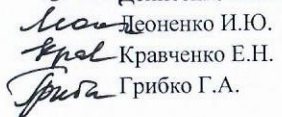 Леоненко И.Ю.
Кравченко Е.Н.
Грибко Г.А.